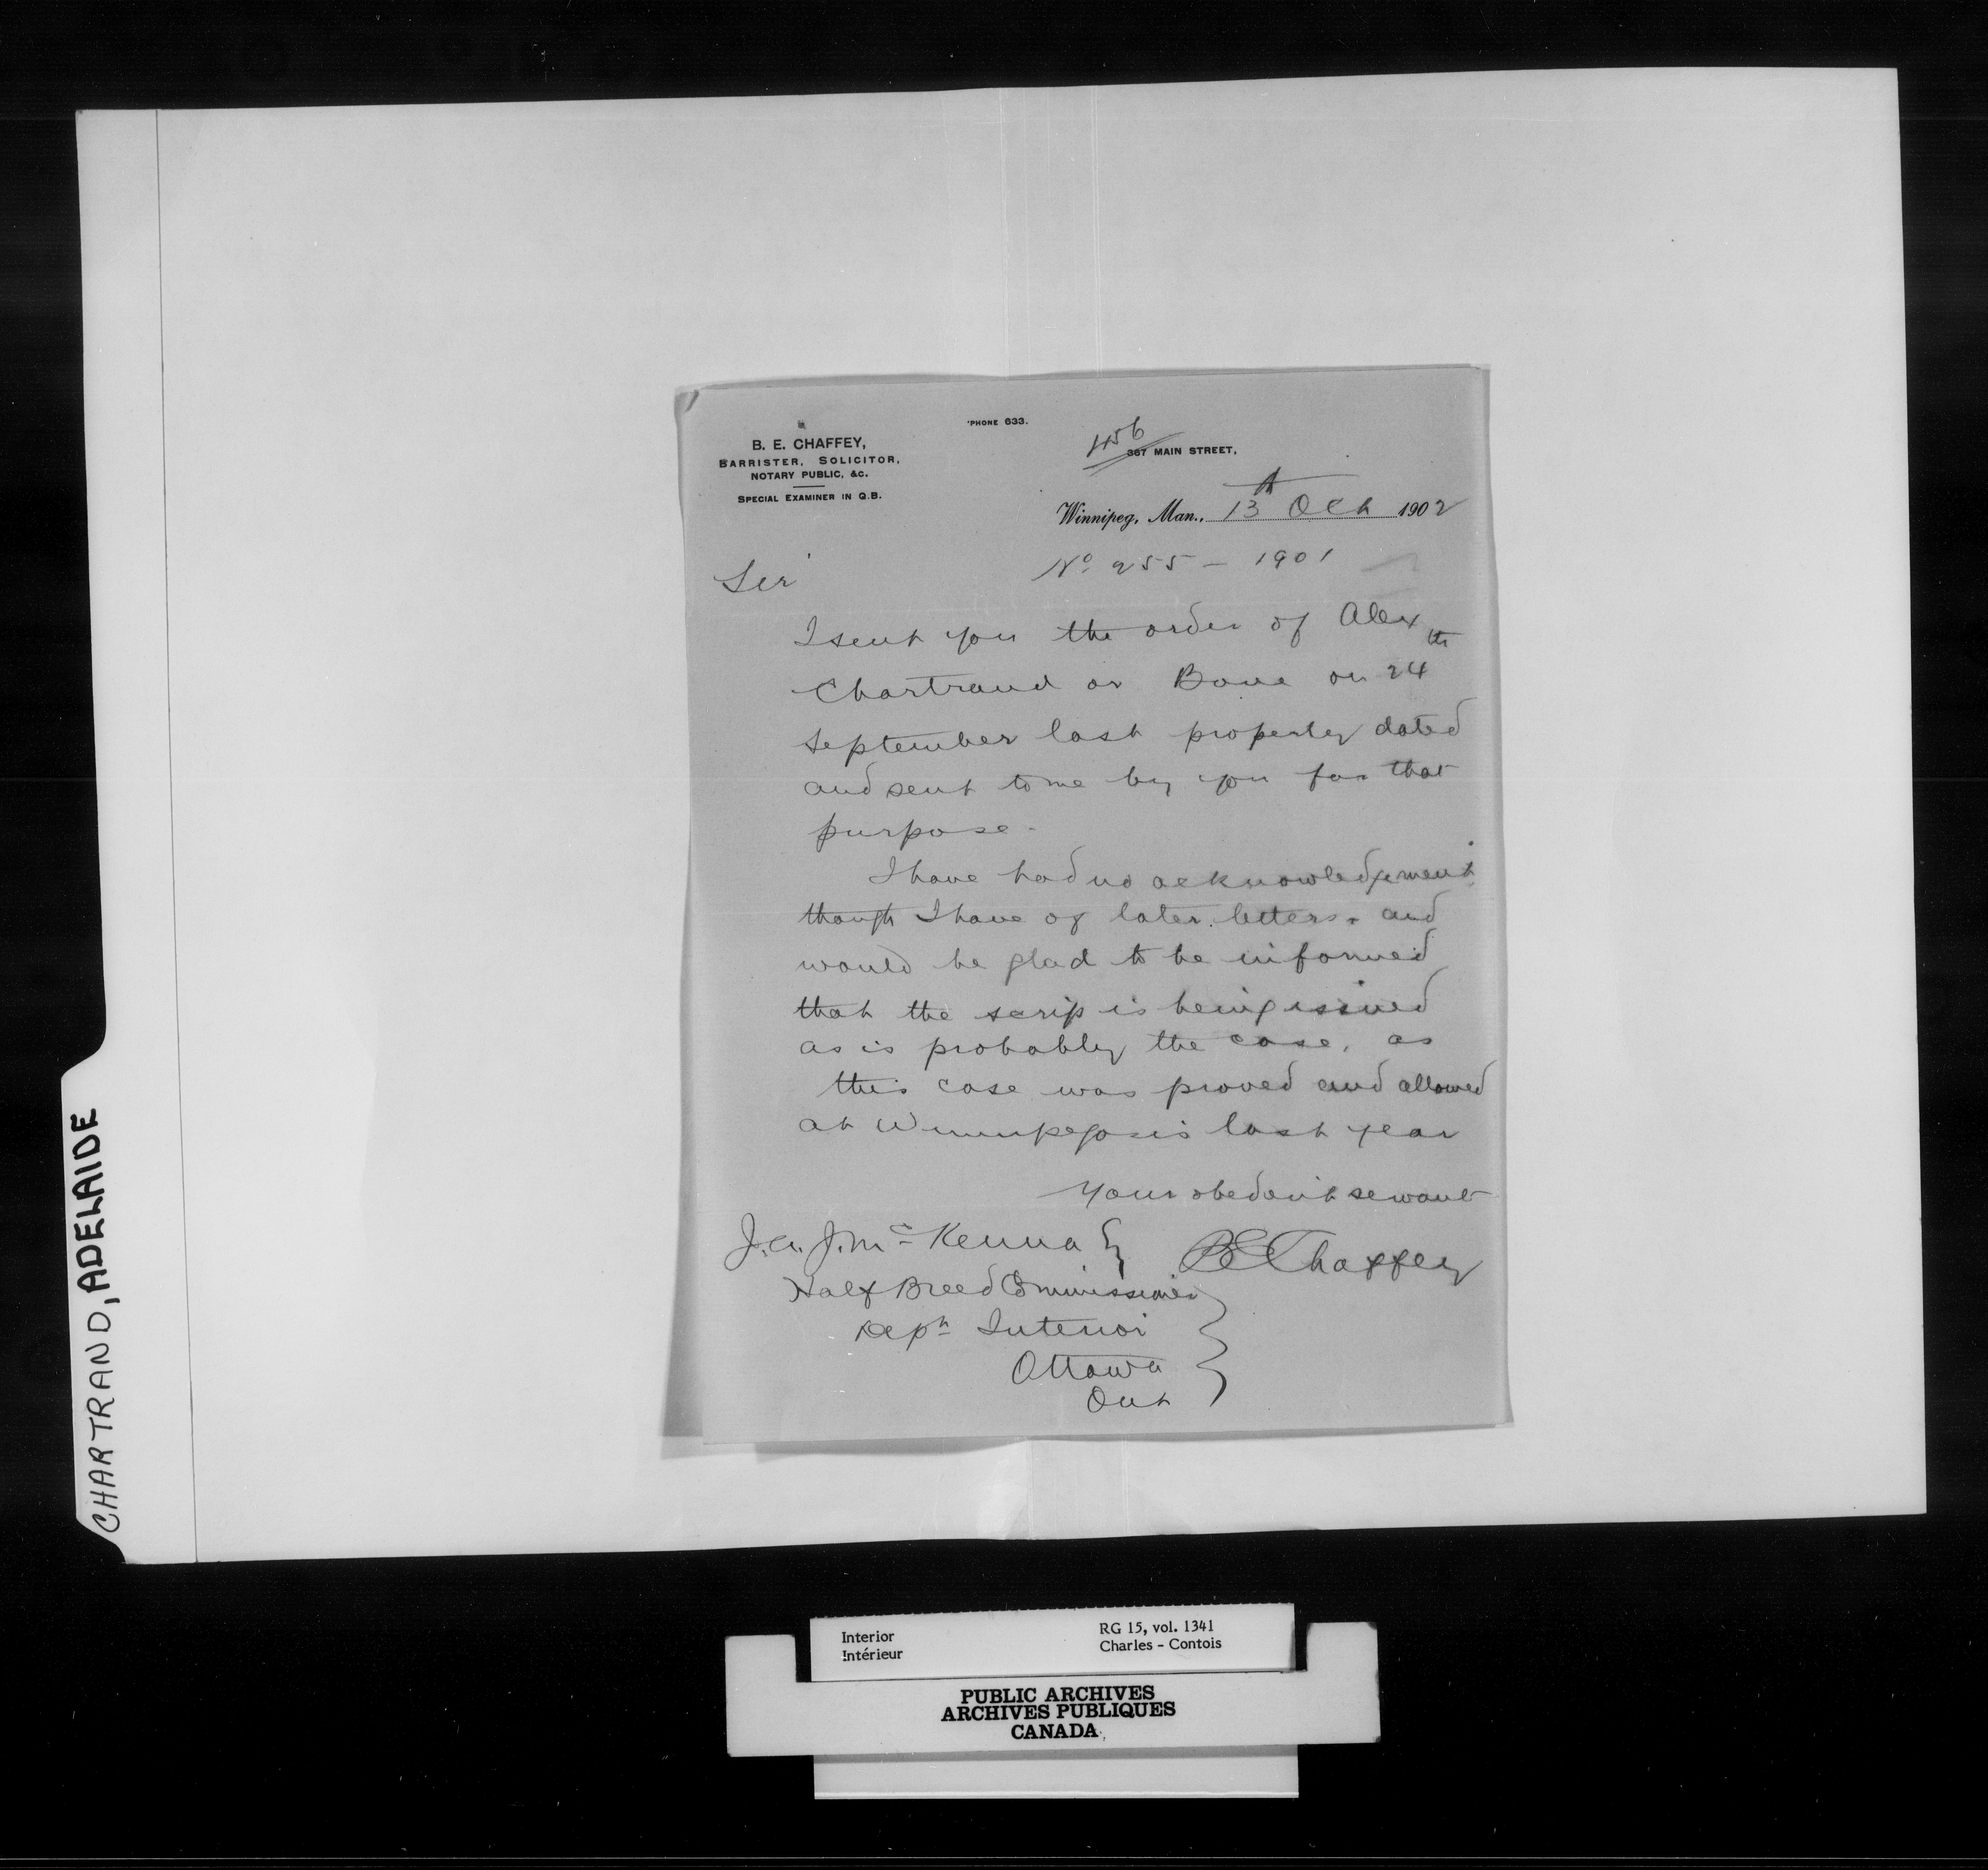 'PHONE 633.
B. E. CHAFFEY,
BARRISTER, SOLICITOR,
NOTARY PUBLIC, &C.
SPECIAL EXAMINER IN Q.B.
456
367 MAIN STREET,
Winnipeg, Man., 13th Oct 1902
No 255 - 1901
Sir
I sent you the order of Alex
Chartrand or Bone on 24th
September last properly dated
and sent to me by you for that
purpose.
I have had no acknowledgement
though I have of later letters. and
would be glad to be informed
that the scrip is being issued
as is probably the case, as
this case was proved and allowed
at Winnipegosis last year
Your obedient servant
BE Chaffey
J. A. J. McKenna
Half Breed Commissioner
Dept Interior
Ottawa
Ont
CHARTRAND, ADELAIDE
Interior
Intérieur
RG 15, vol. 1341
Charles - Contois
PUBLIC ARCHIVES
ARCHIVES PUBLIQUES
CANADA